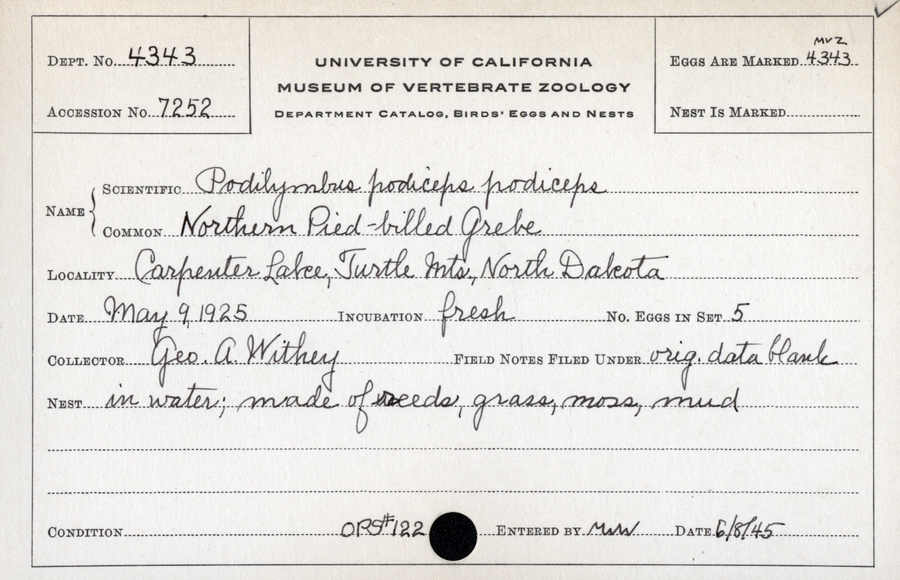 DEPT. No. 4343
ACCESSION No. 7252
UNIVERSITY OF CALIFORNIA
MUSEUM OF VERTEBRATE ZOOLOGY
DEPARTMENT CATALOG, BIRDS' EGGS AND NESTS
MVZ
EGGS ARE MARKED 4343
NEST IS MARKED
NAME
SCIENTIFIC Podilymbus podiceps podiceps
COMMON Northern Pied-billed Grebe
LOCALITY Carpenter Lake, Turtle Mts., North Dakota
DATE May 9, 1925 INCUBATION fresh No. EGGS IN SET 5
COLLECTOR Geo. A. Withey FIELD NOTES FILED UNDER orig. data blank
NEST in water; made of reeds, grass, moss, mud
CONDITION ORS#122 ENTERED BY MWW DATE 6/8/45